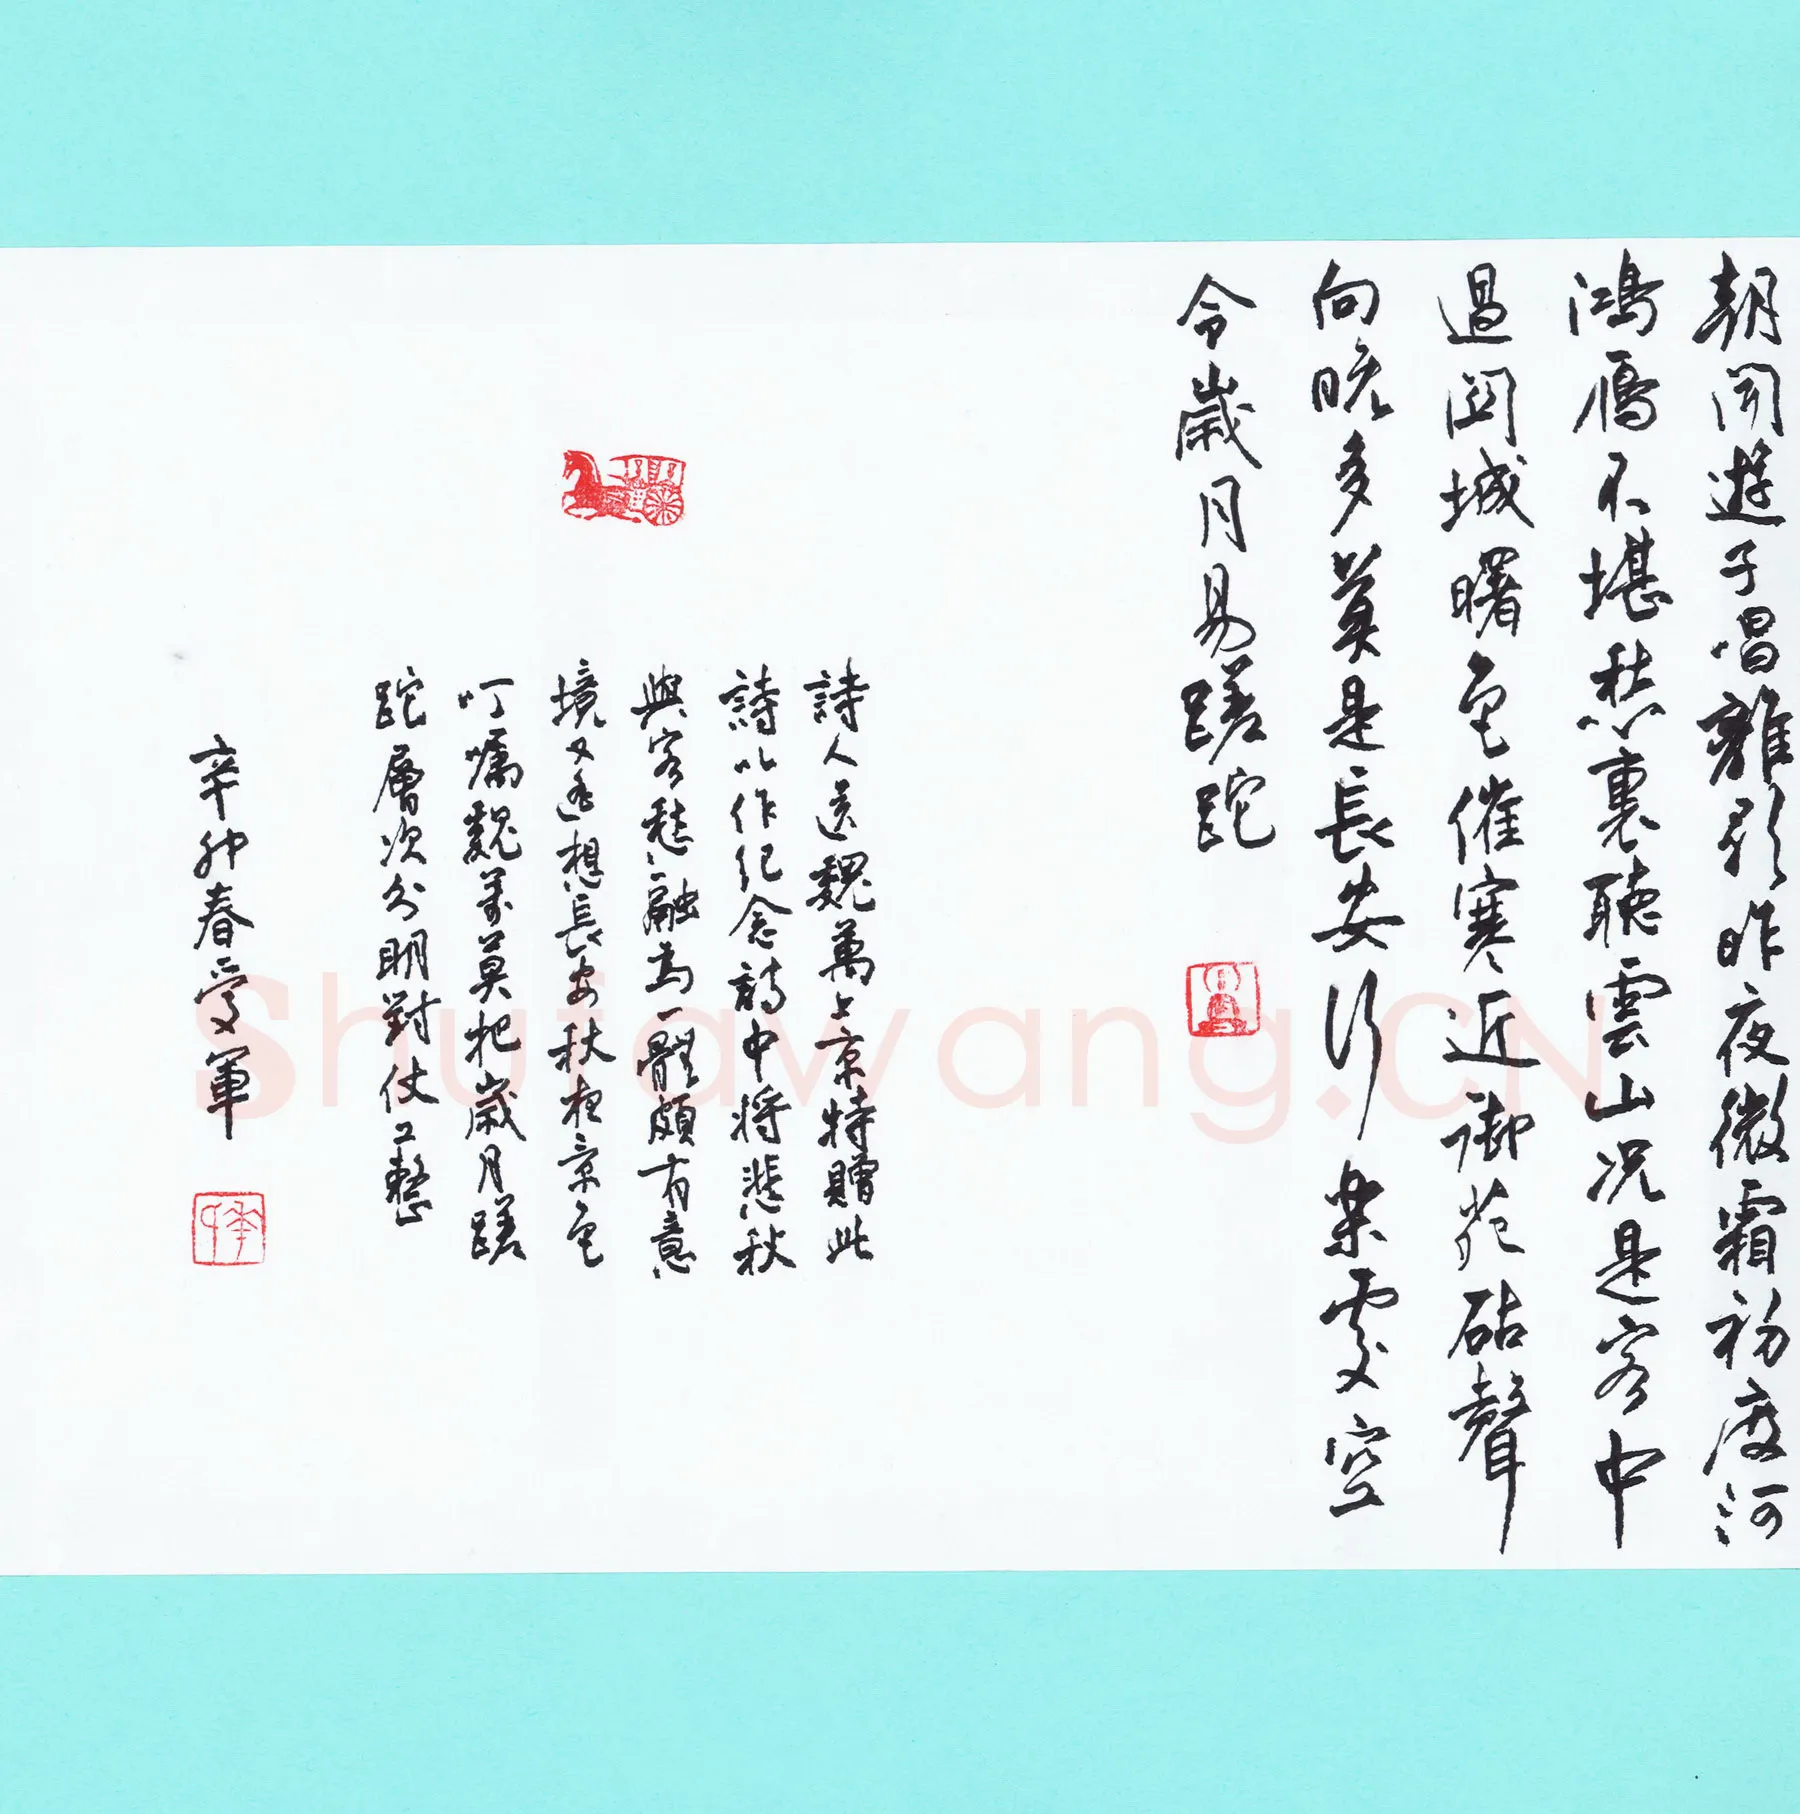 朝聞遊子唱離歌昨夜微霜初度河
鴻雁不堪愁裏聽雲山況是客中
過關城曙色催寒近御苑砧聲
向晚多莫是長安行樂處空
令歲月易蹉跎
詩人送魏萬上京特贈此
詩以作紀念詩中將悲秋
與客愁融為一體頗有意
境又遙想長安秋夜景色
叮囑魏萬莫把歲月蹉
跎層次分明對仗工整
辛卯春受軍
Shufawang.CN